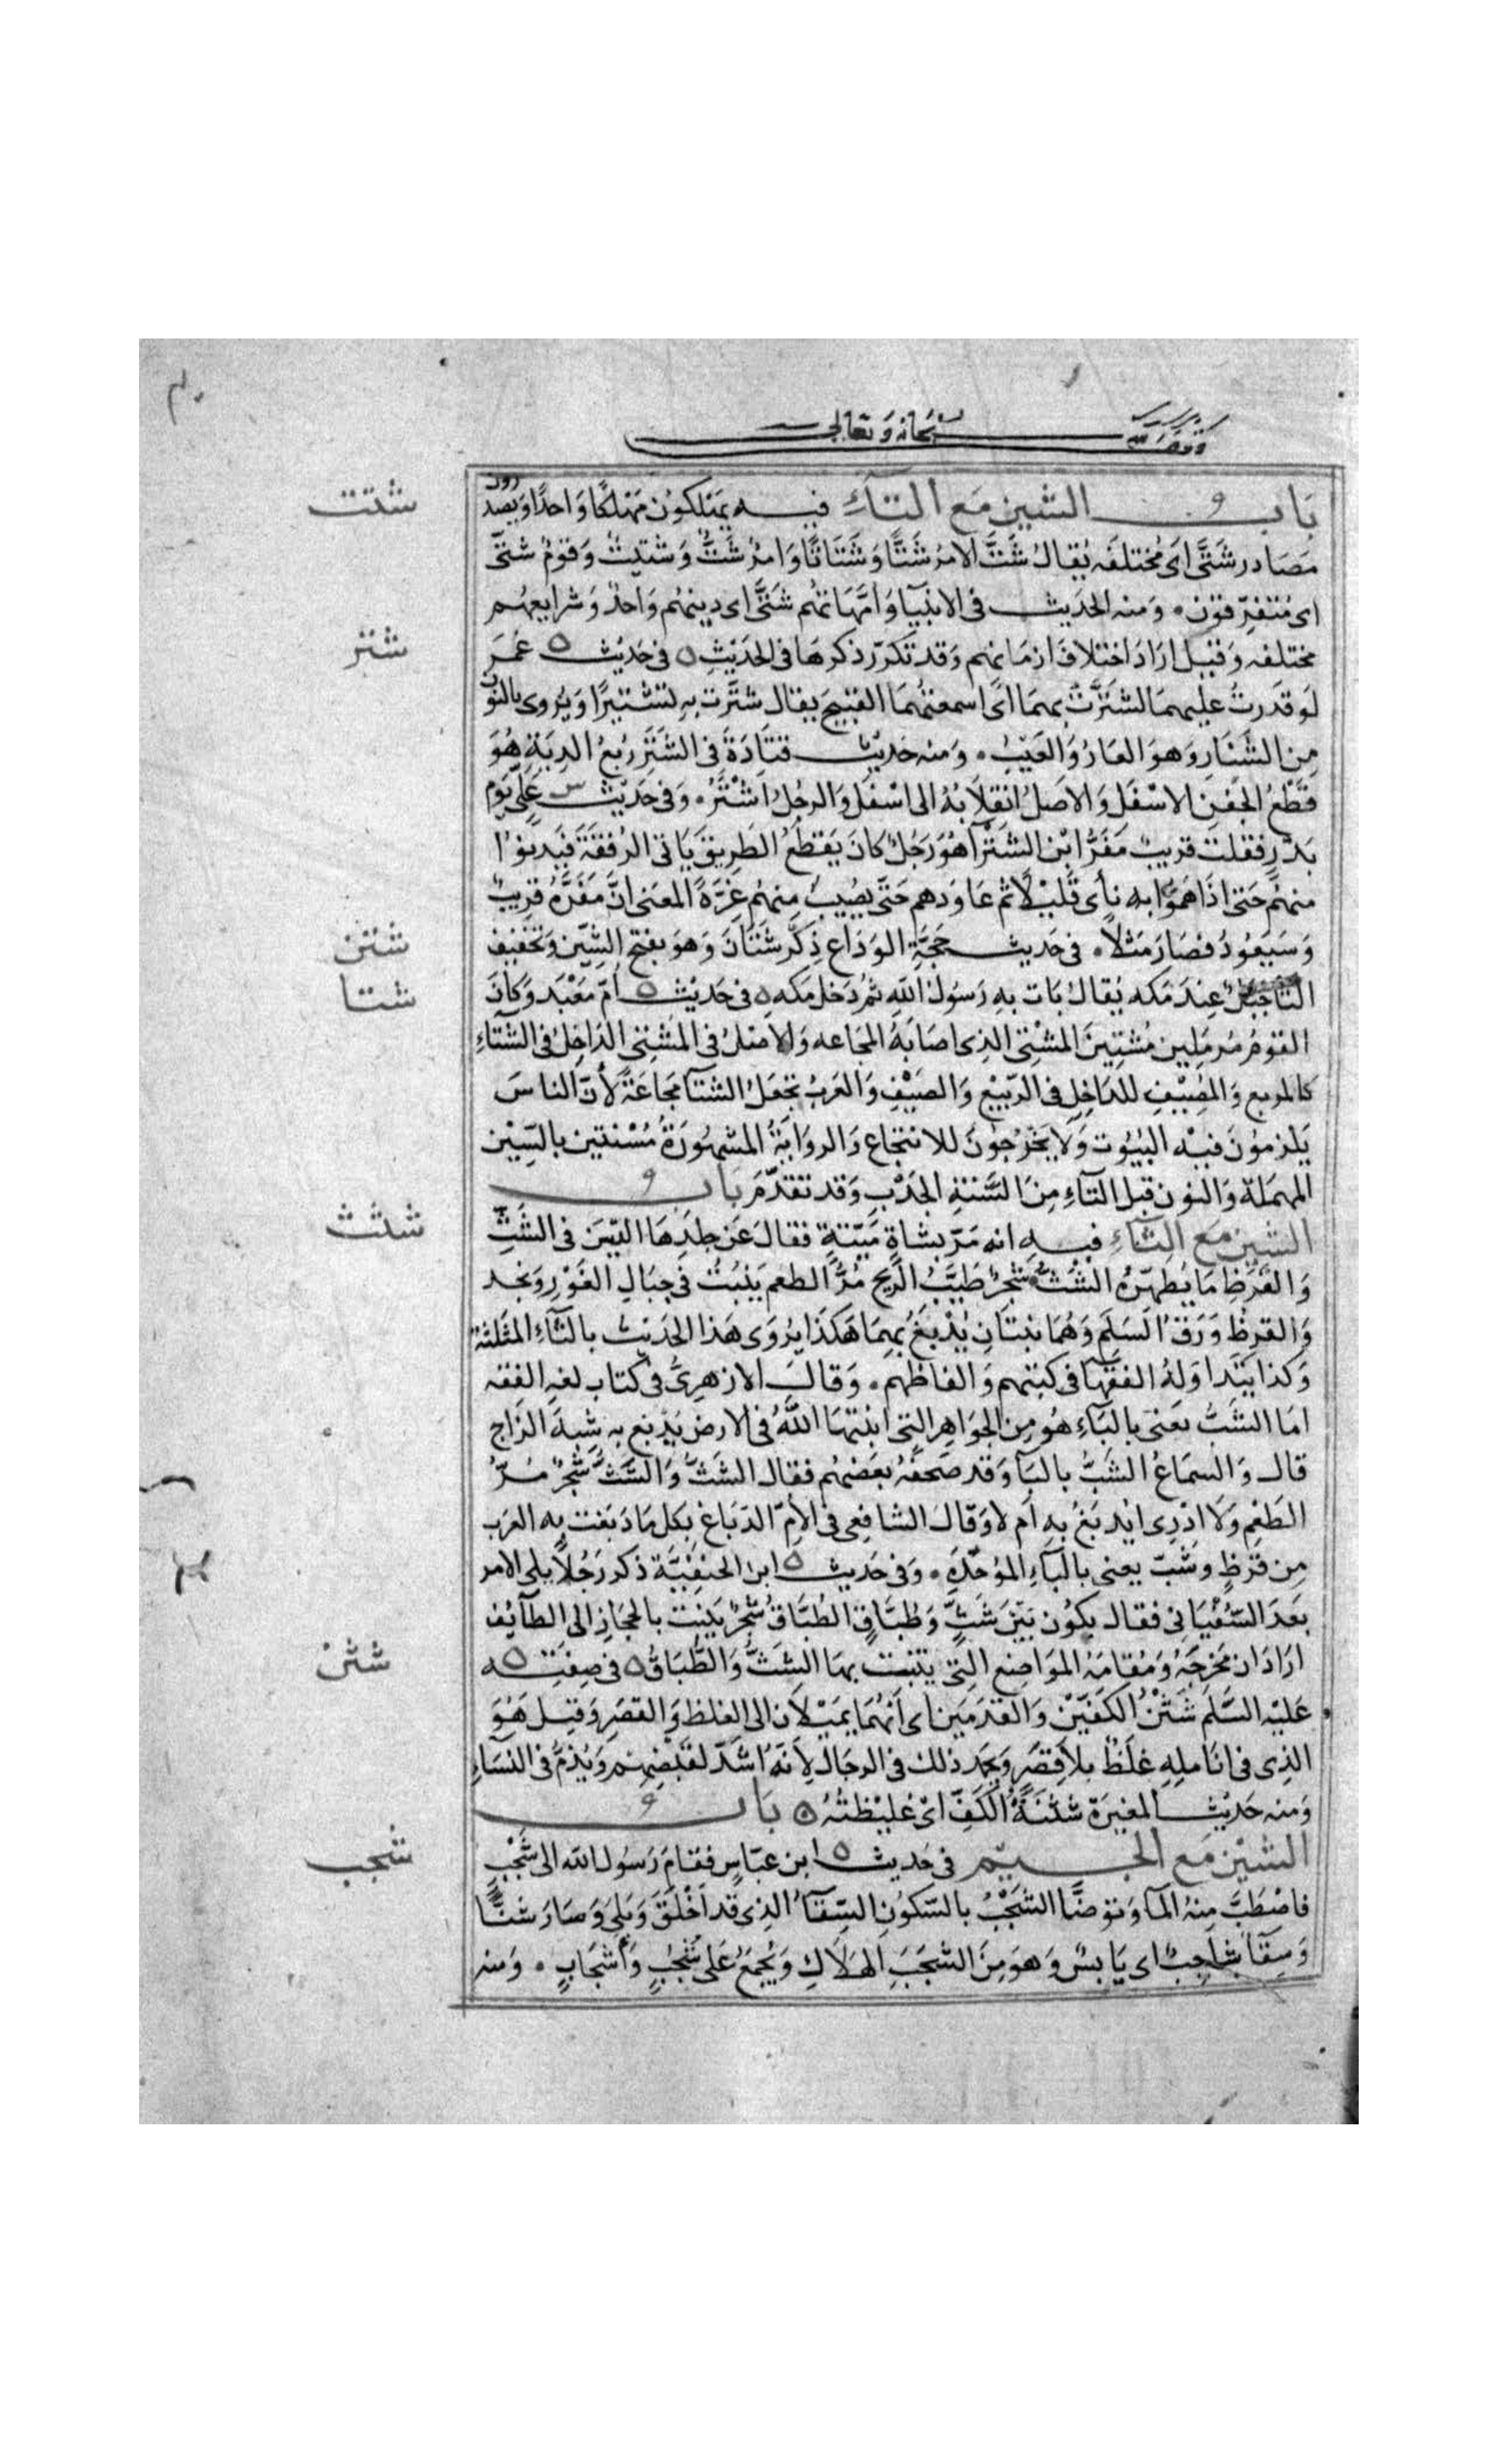 وقف لله سبحانه وتعالى
باب الشين مع التاء فيه يهلكون مهلكا واحدا ويصدرون
شتت
مصادر شتى اى مختلفه يقال شت الامر شتا وشتاتا وامر شت وشتيت وقوم شتى
اى متفرقون ۰ ومنه الحديث فى الانبيا وامهاتهم شتى اى دينهم واحد وشرايعهم
مختلفه وقيل اراد اختلاف ازمانهم وقد تكرر ذكرها فى الحديث ٥ فى حديث ٥ عمر
شتر
لو قدرت عليهما لشترت بهما اى اسمعتهما القبيح يقال شترت به تشتيرا ويروى بالنون
من الشنار وهو العار والعيب ۰ ومنه حديث قتادة فى الشتر ربع الدية هو
قطع الجفن الاسفل والاصل انقلابه الى اسفل والرجل اشتر ۰ وفى حديث س على يوم
بدر فقلت قريب مفر ابن الشترا هو رجل كان يقطع الطريق ياتى الرفقة فيدنوا
منهم حتى اذا هموا به نأى قليلا ثم عاودهم حتى يصيب منهم غرة المعنى ان مفره قريب
وسيعود فصار مثلا ۰ فى حديث حجة الوداع ذكر شتان وهو بفتح الشين وتخفيف
شتن
التا جبل عند مكه يقال بات به رسول الله ثم دخل مكه ٥ فى حديث ٥ ام معبد وكان
شتا
القوم مرملين مشتين المشتى الذى اصابه المجاعه والاصل فى المشتى الداخل فى الشتاء
كالمربع والمصيف للداخل فى الربيع والصيف والعرب تجعل الشتا مجاعة لأن الناس
يلزمون فيه البيوت ولا يخرجون للانتجاع والرواية المشهورة مسنتين بالسين
المهملة والنون قبل التاء من السنة الجدب وقد تقدم باب
الشين مع الثاء فيه انه مر بشاة ميتة فقال عن جلدها اليس فى الشث
شثث
والقرظ ما يطهره الشث شجر طيب الريح مر الطعم ينبت فى جبال الغور ونجد
والقرظ ورق السلم وهما نبتان يدبغ بهما هكذا يروى هذا الحديث بالثاء المثلثه
وكذا يتداوله الفقها فى كتبهم والفاظهم ۰ وقال الازهرى فى كتاب لغة الفقه
اما الشب يعنى بالباء هو من الجواهر التى انبتها الله فى الارض يدبغ به شبه الزاج
قال والسماع الشب بالبا وقد صحفه بعضهم فقال الشث والشث شجر مر
الطعم ولا ادرى ايدبغ به ام لا وقال الشافعى فى الام الدباغ بكل ما دبغت به العرب
من قرظ وشب يعنى بالباء الموحدة ۰ وفى حديث ٥ ابن الحنفية ذكر رجلا يلى الامر
بعد السفيانى فقال يكون بين شث وطباق الطباق شجر ينبت بالحجاز الى الطآئف
اراد ان مخرجه ومقامه المواضع التى ينبت بها الشث والطباق ٥ فى صفته ٥
شثن
عليه السلم شثن الكفين والقدمين اى انهما يميلان الى الغلظ والقصر وقيل هو
الذى فى انامله غلظ بلا قصر ويحمد ذلك فى الرجال لانه اشد لقبضهم ويذم فى النساء
ومنه حديث المغيرة شثنة الكف اى غليظته ٥ باب
الشين مع الجيم فى حديث ٥ ابن عباس فقام رسول الله الى شجب
شجب
فاصطب منه الما وتوضا الشجب بالسكون السقاء الذى قد اخلق وبلى وصار شنا
وسقا شاجب اى يابس وهو من الشجب الهلاك ويجمع على شجب واشجاب ۰ ومنه